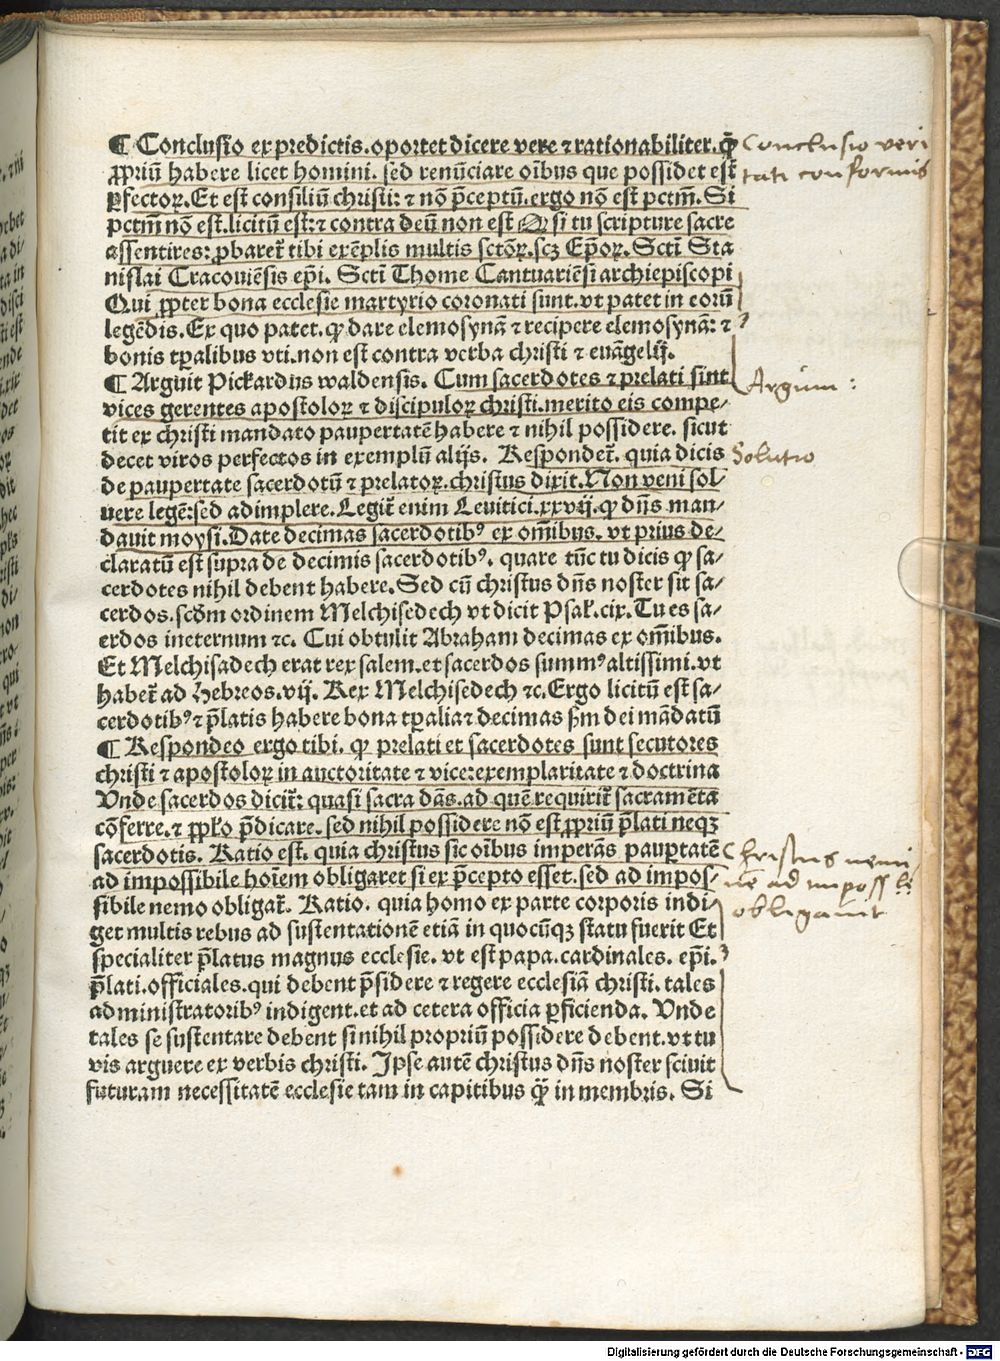 ¶ Conclusio ex predictis. oportet dicere vere ⁊ rationabiliter. ꝙ̄
ꝓpriū habere licet homini. sed renūciare oībus que possidet est
ꝑfectoꝝ. Et est consiliū christi: ⁊ nō p̄ceptū. ergo nō est pctm̄. Si
pctm̄ nō est. licitū est: ⁊ contra deū non est si tu scripture sacre
assentires: ꝓbaret᷑ tibi exēplis multis sctōꝝ. scꝫ Ep̄oꝝ. Scti Sta
nislai Cracouiēsis ep̄i. Scti Thome Cantuariēsi archiepiscopi
Qui ꝓpter bona ecclesie martyrio coronati sunt. vt patet in eorū
legēdis. Ex quo patet. ꝙ dare elemosynā ⁊ recipere elemosynā: ⁊
bonis tꝑalibus vti. non est contra verba christi ⁊ euāgelij.
¶ Arguit Pickardus waldensis. Cum sacerdotes ⁊ prelati sint
vices gerentes apostoloꝝ ⁊ discipuloꝝ christi. merito eis compe⸗
tit ex christi mandato paupertatē habere ⁊ nihil possidere. sicut
decet viros perfectos in exemplū alijs. Respondet᷑. quia dicis
de paupertate sacerdotū ⁊ prelatoꝝ. christus dixit. Non veni sol⸗
uere legē: sed adimplere. Legit᷑ enim Leuitici. xxvij. ꝙ dn̄s man⸗
dauit moysi. Date decimas sacerdotibꝰ ex om̄ibus. vt prius de⸗
claratū est supra de decimis sacerdotibꝰ. quare tūc tu dicis ꝙ sa⸗
cerdotes nihil debent habere. Sed cū christus dn̄s noster sit sa⸗
cerdos. scd̄m ordinem Melchisedech vt dicit Psal̄. cix. Tu es sa⸗
erdos ineternum ⁊c. Cui obtulit Abraham decimas ex om̄ibus.
Et Melchisadech erat rex salem. et sacerdos summꝰ altissimi. vt
habet᷑ ad Hebreos. vij. Rex Melchisedech ⁊c. Ergo licitū est sa⸗
cerdotibꝰ ⁊ p̄latis habere bona tꝑalia ⁊ decimas ẜm dei mādatū
¶ Respondeo ergo tibi. ꝙ prelati et sacerdotes sunt secutores
christi ⁊ apostoloꝝ in auctoritate ⁊ vice: exemplaritate ⁊ doctrina
Vnde sacerdos dicit᷑: quasi sacra dās. ad quē requirit᷑ sacramēta
cōferre. ⁊ ꝓp̄lo p̄dicare. sed nihil possidere nō est ꝓpriū p̄lati neqꝫ
sacerdotis. Ratio est. quia christus sic oībus imperās pauꝑtatē
ad impossibile hoīem obligaret si ex p̄cepto esset. sed ad impos⸗
sibile nemo obligat᷑. Ratio. quia homo ex parte corporis indi⸗
get multis rebus ad sustentationē etiā in quocūqꝫ statu fuerit Et
specialiter p̄latus magnus ecclesie. vt est papa. cardinales. ep̄i.
p̄lati. officiales. qui debent p̄sidere ⁊ regere ecclesiā christi. tales
administratoribꝰ indigent. et ad cetera officia ꝑficienda. Vnde
tales se sustentare debent si nihil propriū possidere debent. vt tu
vis arguere ex verbis christi. Ipse autē christus dn̄s noster sciuit
futuram necessitatē ecclesie tam in capitibus ꝙ̄ in membris. Si
Conclusio veri
tati conformis
Argum:
Solutio
Christus nemi
nē ad impossib
obligauit
Digitalisierung gefördert durch die Deutsche Forschungsgemeinschaft - DFG